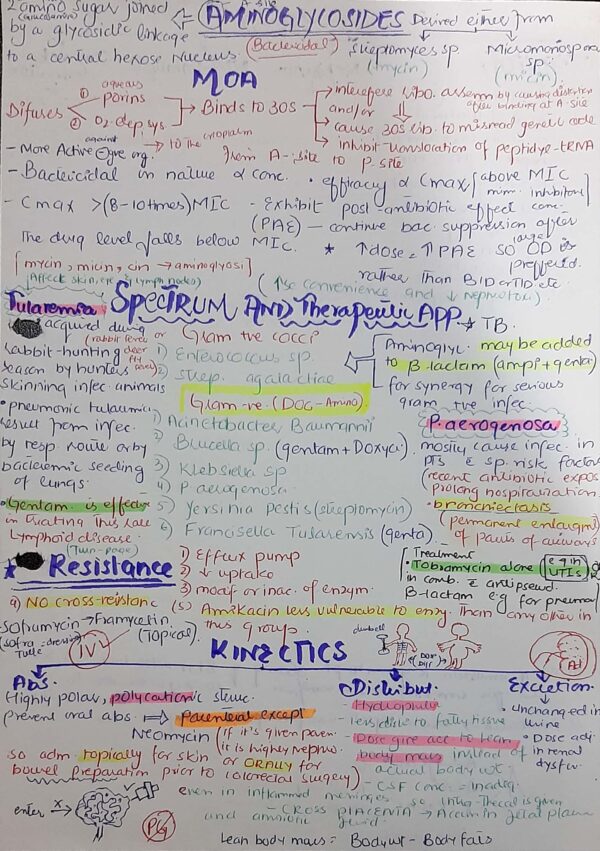 2 amino sugar joined
(aminoglycosidic)
by a glycosidic linkage
to a central hexose nucleus
AMINOGLYCOSIDES
(Bactericidal)
Derived either from
Streptomyces sp.
(mycin)
Micromonospora
sp.
(micin)
MOA
Difuses
① aqueous
porins
② O2-dep sys
to the cytoplasm
Binds to 30S
interfere ribo. assem by causing distortion
after binding at A-site
and/or
cause 30S rib. to misread genetic code
inhibit translocation of peptidye-tRNA
from A-site to P-site
- More Active against -ve org.
- Bactericidal in nature α conc.
• efficacy α Cmax (above MIC
min. inhibitory
conc.
- Cmax > (8-10times) MIC
- Exhibit post-antibiotic effect
(PAE) – continue bac. suppression after
The drug level falls below MIC.
* ↑dose = ↑PAE so larger OD is
rather than BID or TID etc preffered.
[mycin, micin, cin → aminoglycosi]
(↑se convenience and ↓ nephrotox)
(Affect skin, eye, lymph nodes)
Tularemia
SPECTRUM AND Therapeutic APP
* TB.
acquired during
(rabbit fever or
deer fever)
rabbit-hunting
season by hunters
skinning infec animals
• pneumonic tularemia
result from infec.
by resp. route or by
bacteremic seeding
of lungs.
• Gentam is effective
in treating this rare
lymphoid disease.
Gram +ve cocci
1) Enterococcus sp.
2) Strep. agalactiae
Gram -ve. (DOC - Amino)
1) Acinetobacter Baumannii
2) Brucella sp. (gentam + Doxycy.)
3) Klebsiella sp
4) P aerogenosa
5) Yersinia pestis (streptomycin)
6) Francisella Tularensis (genta)
Aminogly. may be added
to β-lactam (ampi + genta)
for synergy for serious
gram +ve infec.
P. aerogenosa
mostly cause infec. in
pts c sp. risk factors
(recent antibiotic expos
prolong hospitaization.
• bronchiectasis
(permanent enlargm
of parts of airways
Treatment
• Tobramycin alone (e.g in UTIs) or
in comb. c antipseud.
β-lactam e.g for pneumon
* Resistance
1) Efflux pump
2) ↓ uptake
3) modif or inac. of enzym.
4) NO cross-reistanc
(5) Amikacin less vulnerable to enzy. Than any other in
this group.
Soframycin → Framycetin
(Topical)
(sofra-dressing
Tulle
IV
dumbell
KINETICS
Abs.
Highly polar, polycationic struc.
prevent oral abs. ⇒ Parenteral except
Neomycin (if it's given paren.
it is highly nephro.
so adm topically for skin or ORALLY for
bowel preparation prior to colorectal surgery)
enter
X
Distribut.
Hydrophilic
- less distr to fatty tissue
- Dose give acc to lean
body mass instead of
actual body wt
- CSF conc. = inadeq.
even in inflammed meninges. so intra-thecal is given
- CROSS PLACENTA → Accum in fetal plasma
and amniotic fluid.
Lean body mass = Bodywt - Body fats
Excretion.
• unchanged in
urine
• Dose adj.
in renal
dysfun